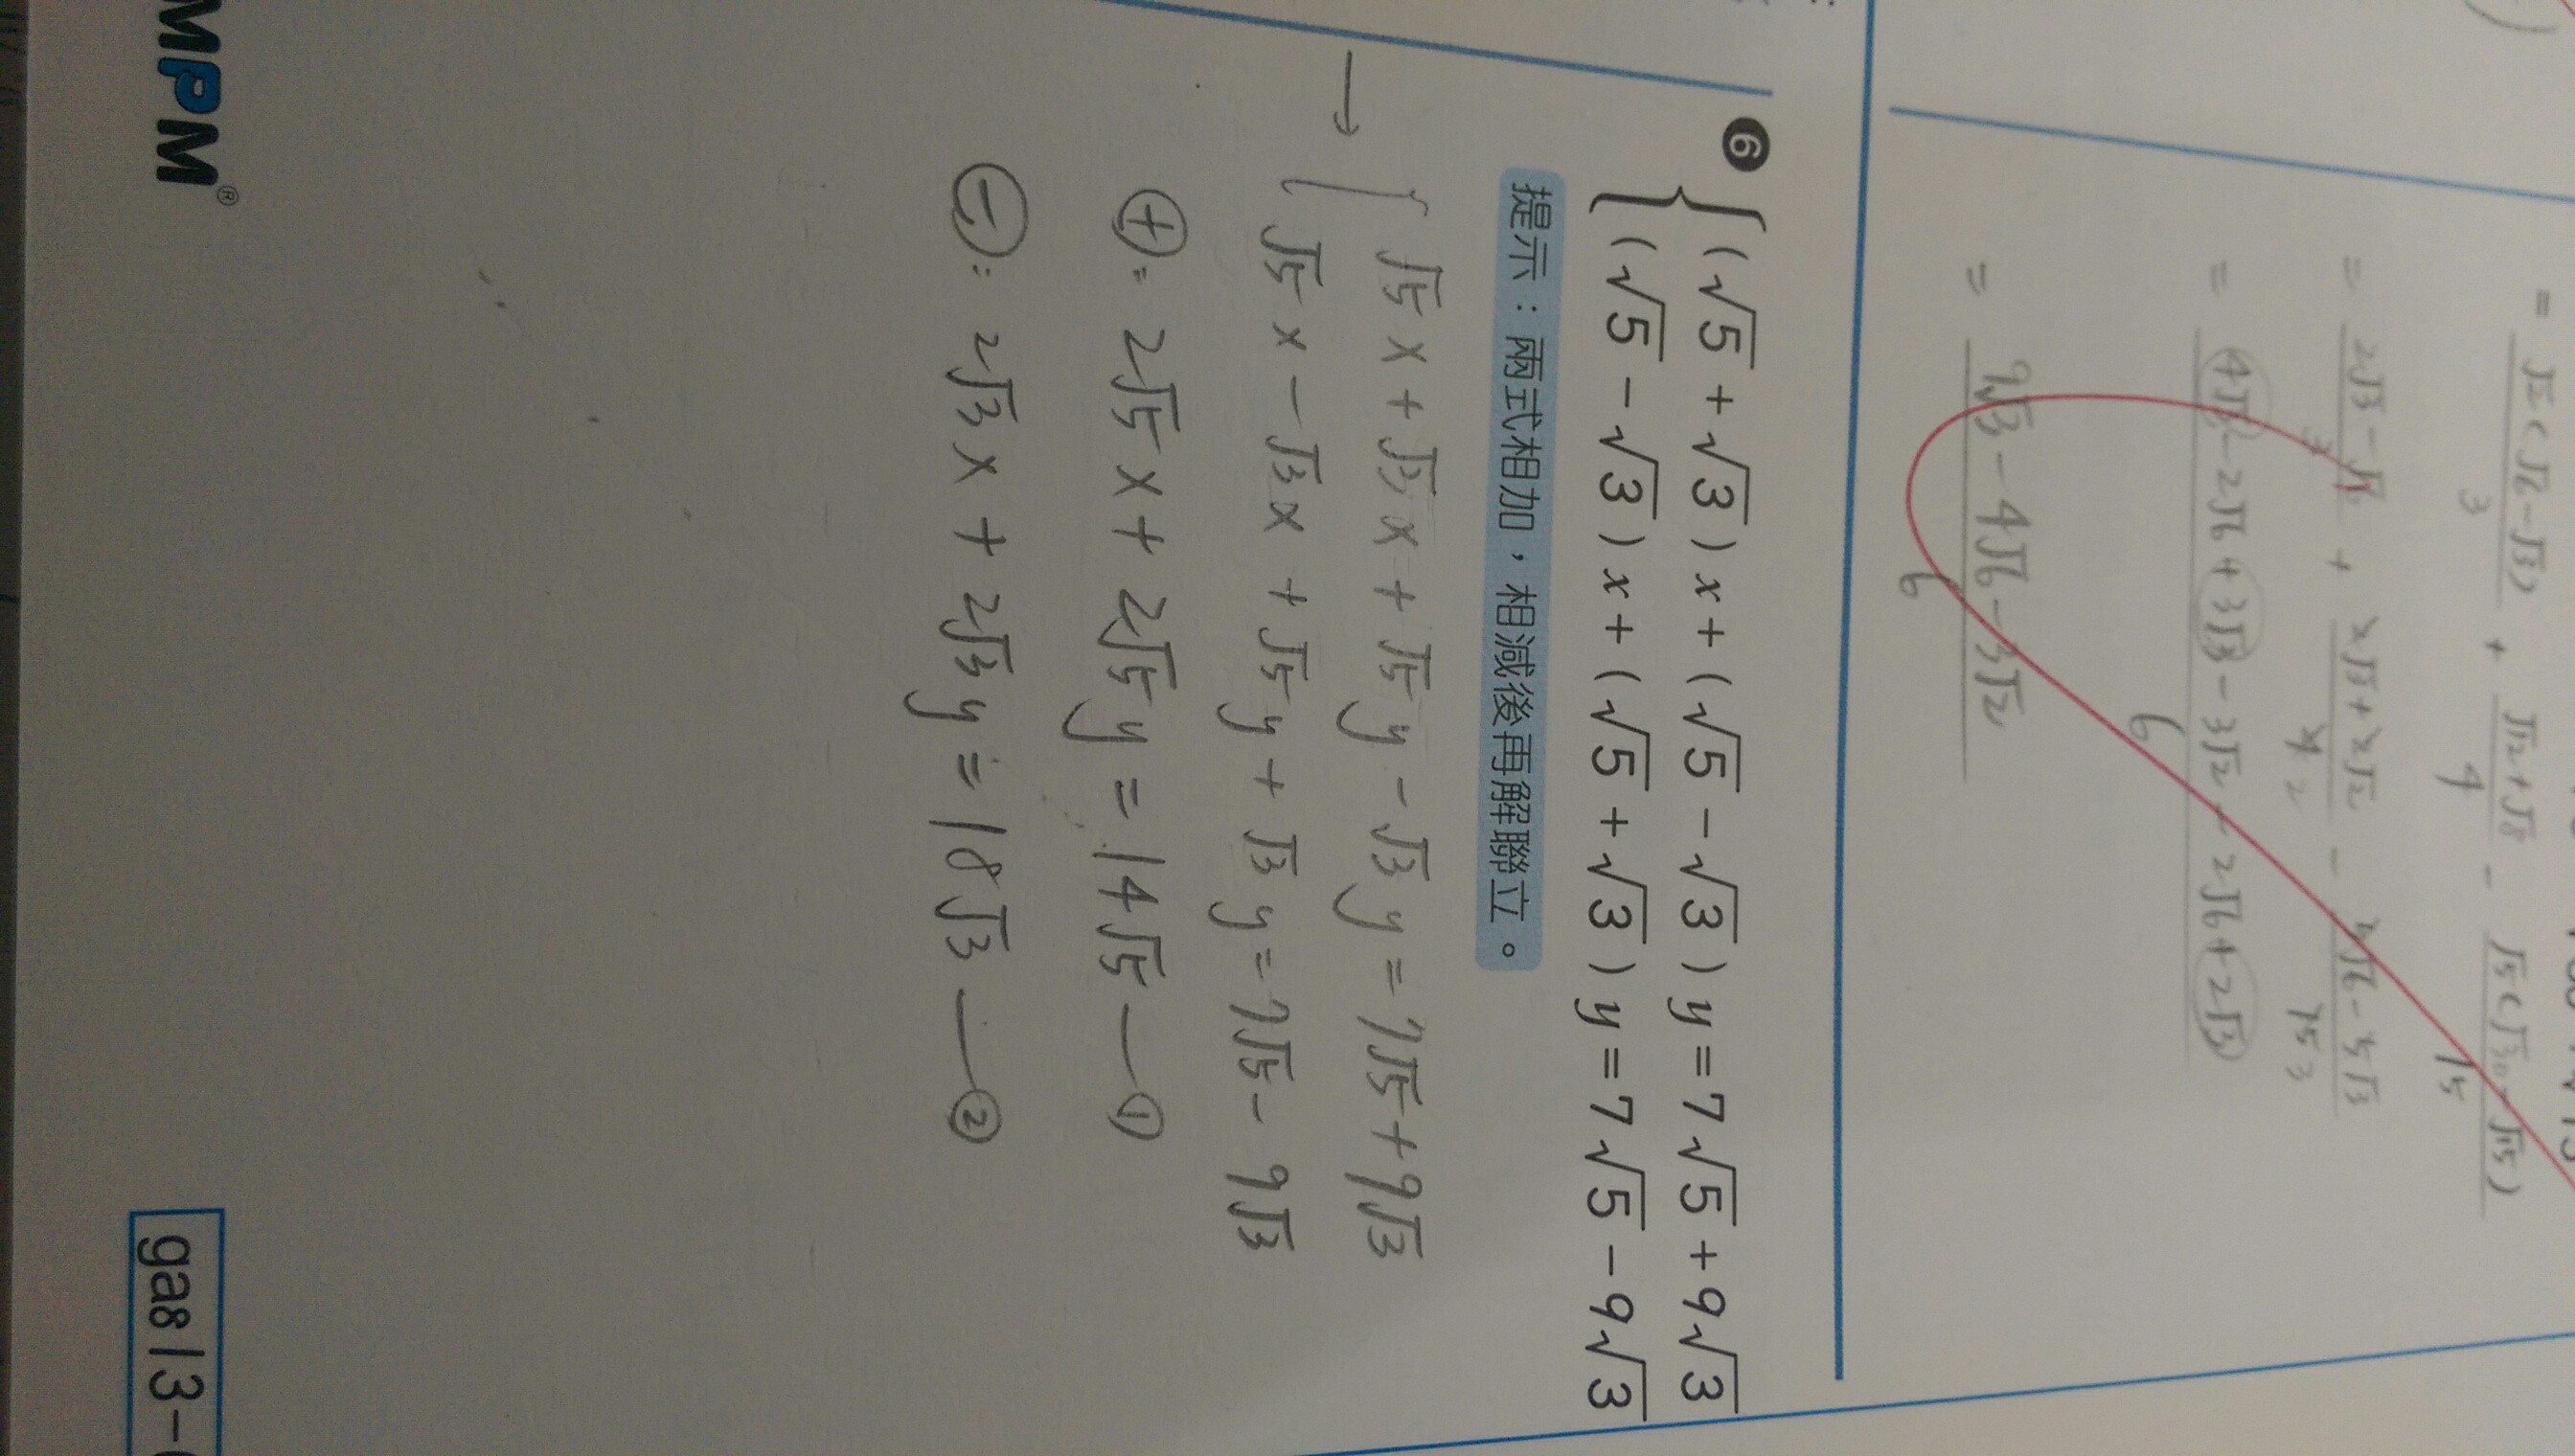 = √2(√6-√3)/3 + (√12+√8)/4 - √5(√30-√15)/15
= (2√3-√6)/3 + (2√3+2√2)/4 2 - (5√6-5√3)/15 3
= (4√3-2√6+3√3-3√2-2√6+2√3)/6
= (9√3-4√6-3√2)/6
❻ { (√5+√3)x+(√5-√3)y=7√5+9√3
(√5-√3)x+(√5+√3)y=7√5-9√3
提示：兩式相加，相減後再解聯立。
→ { √5x+√3x+√5y-√3y=7√5+9√3
√5x-√3x+√5y+√3y=7√5-9√3
⊕: 2√5x+2√5y=14√5 — ①
⊖: 2√3x+2√3y=18√3 — ②
MPM®
ga813-